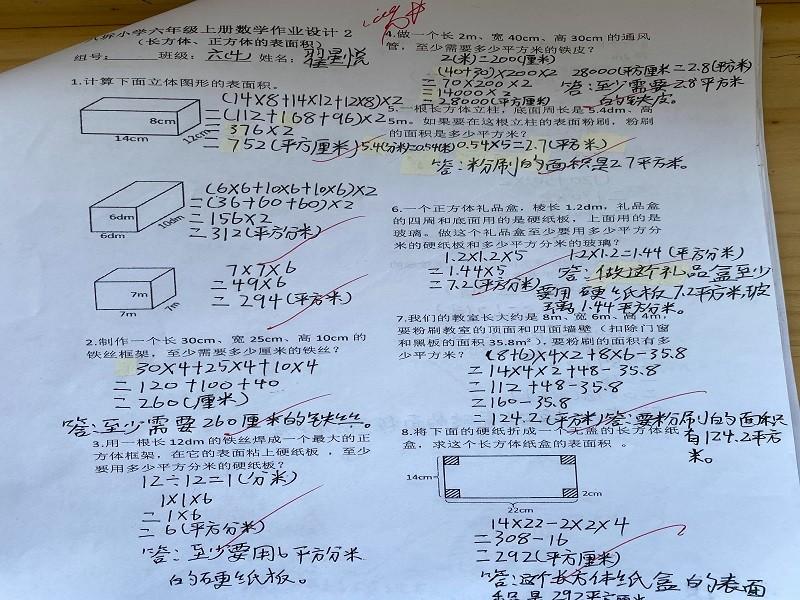 小学六年级上册数学作业设计 2
(长方体、正方体的表面积)
组号: 班级: 六(4) 姓名: 翟星悦
1.计算下面立体图形的表面积。
8cm
14cm
12cm
(14×8+14×12+12×8)×2
=(112+168+96)×2
=376×2
=752(平方厘米)
6dm
6dm
10dm
(6×6+10×6+10×6)×2
=(36+60+60)×2
=156×2
=312(平方分米)
7m
7m
7m
7×7×6
=49×6
=294(平方米)
2.制作一个长 30cm、宽 25cm、高 10cm 的
铁丝框架,至少需要多少厘米的铁丝?
30×4+25×4+10×4
=120+100+40
=260(厘米)
答:至少需要260厘米的铁丝。
3.用一根长 12dm 的铁丝焊成一个最大的正
方体框架,在它的表面粘上硬纸板,至少
要用多少平方分米的硬纸板?
12÷12=1(分米)
1×1×6
=1×6
=6(平方分米)
答:至少要用6平方分米
的硬纸板。
4.做一个长 2m、宽 40cm、高 30cm 的通风
管,至少需要多少平方米的铁皮?
2(米)=200(厘米)
(40+30)×200×2
=70×200×2
=14000×2
=28000(平方厘米)
28000(平方厘米)=2.8(平方米)
答:至少需要2.8平方米
的铁皮。
5.一根长方体立柱,底面周长是 5.4dm、高
5m。如果要在这根立柱的表面粉刷,粉刷
的面积是多少平方米?
5.4(分米)=0.54(米)
0.54×5=2.7(平方米)
答:粉刷的面积是2.7平方米。
6.一个正方体礼品盒,棱长 1.2dm,礼品盒
的四周和底面用的是硬纸板,上面用的是
玻璃。做这个礼品盒至少要用多少平方分
米的硬纸板和多少平方分米的玻璃?
1.2×1.2×5
=1.44×5
=7.2(平方分米)
1.2×1.2=1.44(平方米)
答:做这个礼品盒至少
要用硬纸板7.2平方米,玻
璃1.44平方米。
7.我们的教室长大约是 8m、宽 6m、高 4m,
要粉刷教室的顶面和四面墙壁(扣除门窗
和黑板的面积 35.8m²),要粉刷的面积有多
少平方米?
(8+6)×4×2+8×6-35.8
=14×4×2+48-35.8
=112+48-35.8
=160-35.8
=124.2(平方米)
答:要粉刷的面积
有124.2平方
米。
8.将下面的硬纸折成一个无盖的长方体纸
盒,求这个长方体纸盒的表面积。
14cm
2cm
22cm
14×22-2×2×4
=308-16
=292(平方厘米)
答:这个长方体纸盒的表面
积是292平方厘米